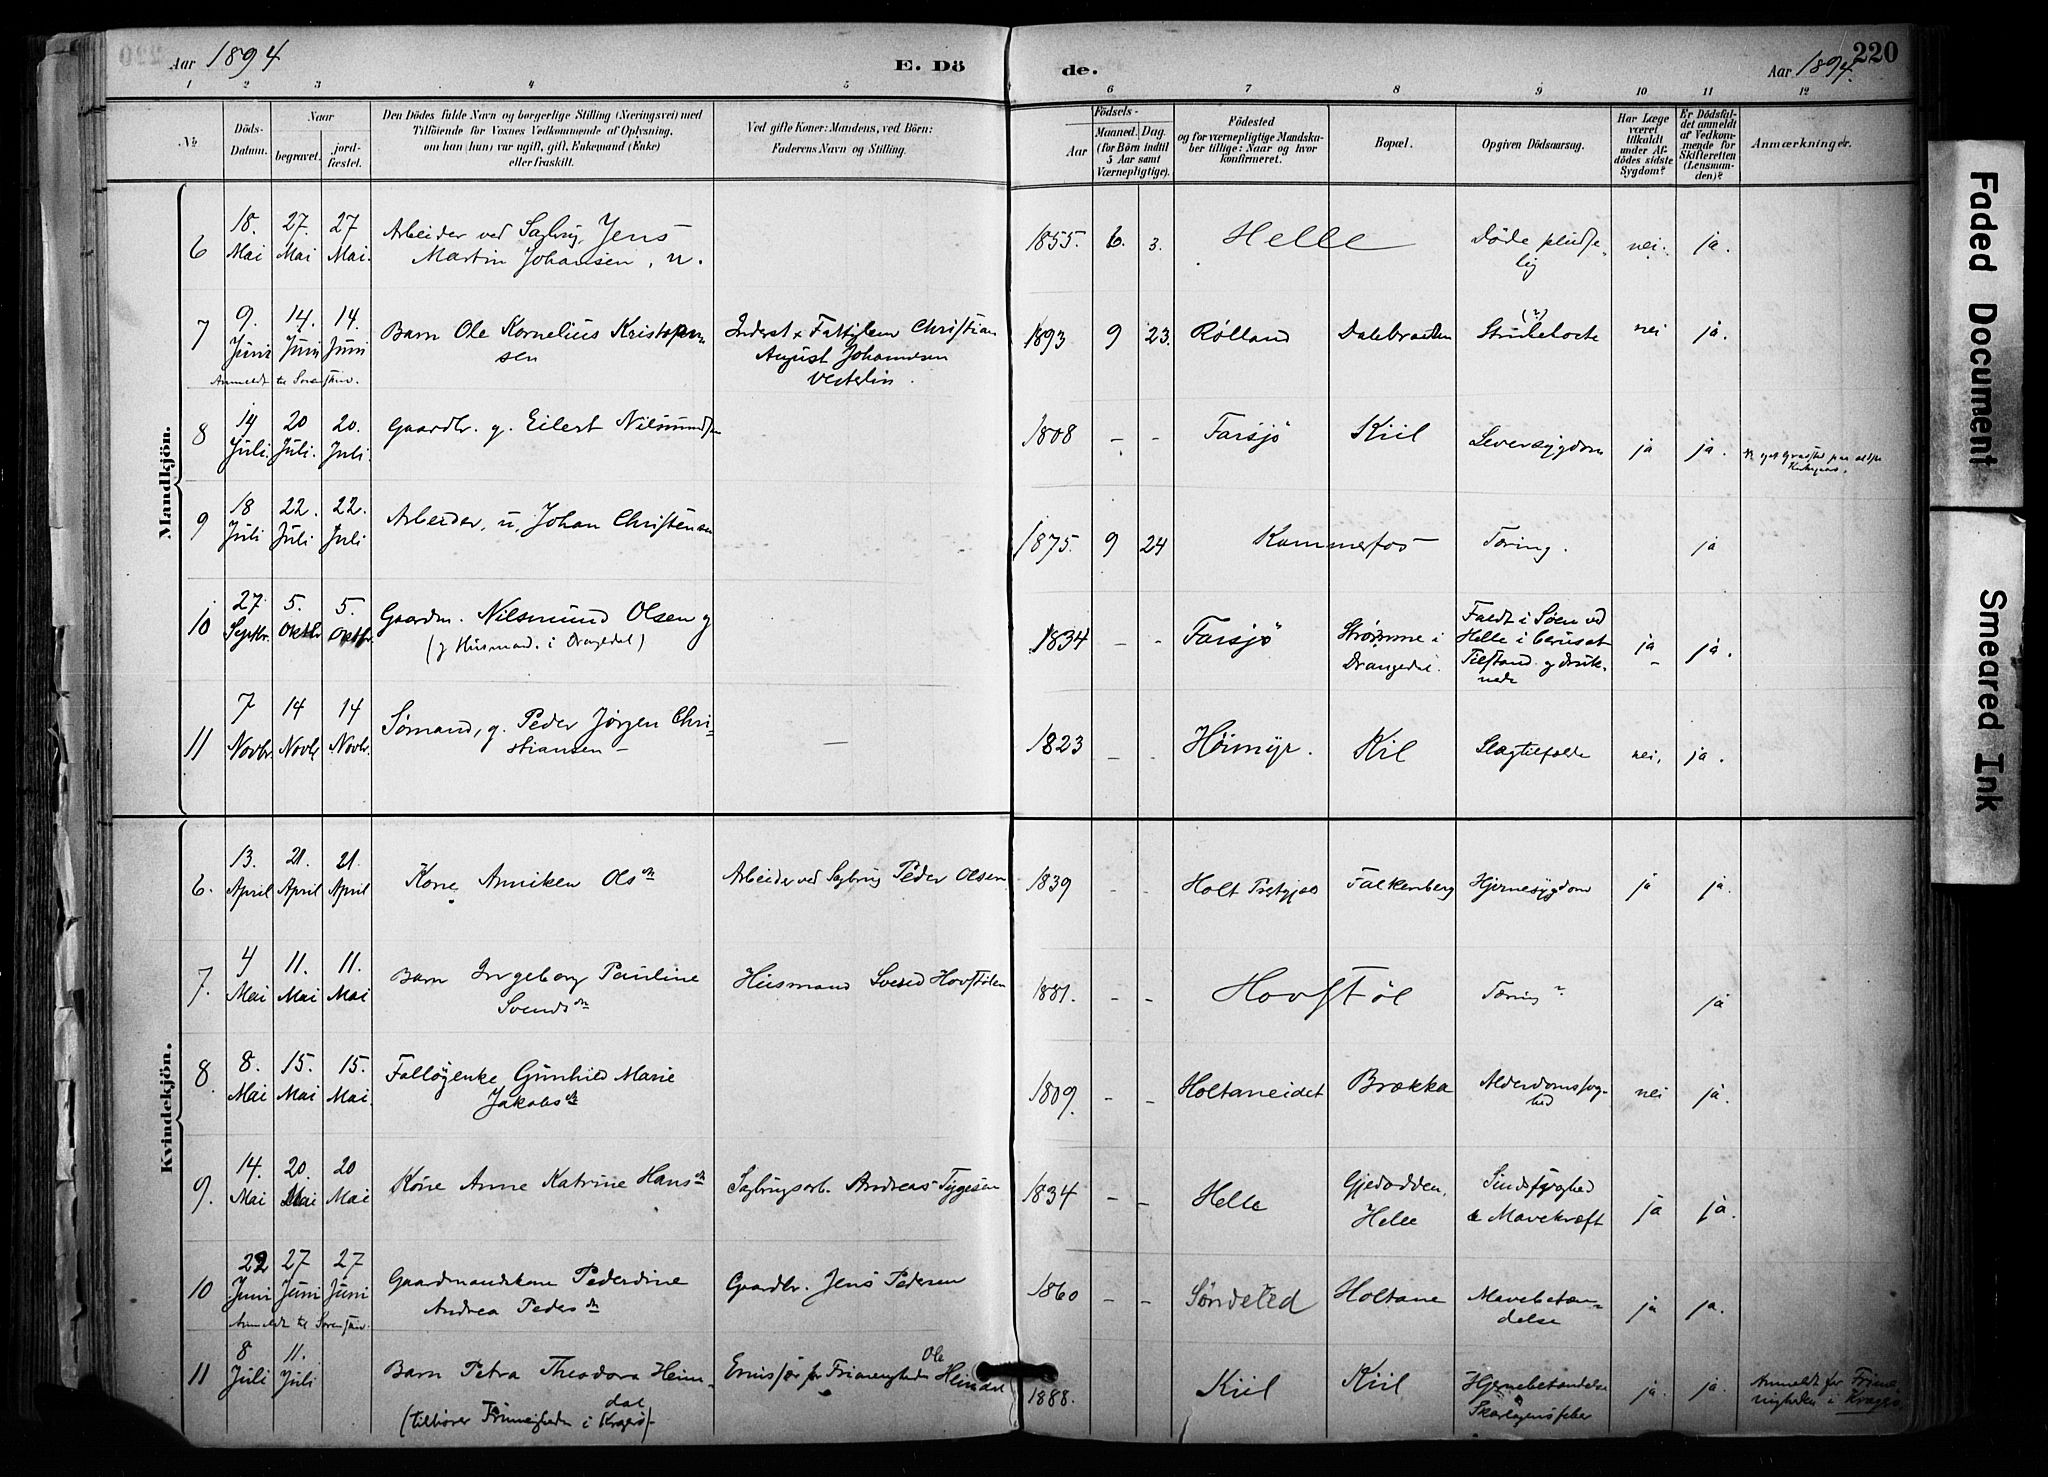 Aar 1894
E. Dö
de.
Aar 1894.
220
1 2 3 4 5 6 7 8 9 10 11 12
№
Döds-Datum.
Naar
begravet.
jordfæstet.
Den Dödes fulde Navn og borgerlige Stilling (Næringsvei) med
Tilföiende for Voxnes Vedkommende af Oplysning,
om han (hun) var ugift, gift, Enkemand (Enke)
eller fraskilt.
Ved gifte Koner: Mandens, ved Börn:
Faderens Navn og Stilling.
Födsels-
Aar
Maaned. Dag.
(for Börn indtil
5 Aar samt
Værnepligtige).
Födested
og for værnepligtige Mandskaber
tillige: Naar og hvor
konfirmeret.
Bopæl.
Opgiven Dödsaarsag.
Har Læge
været
tilkaldt
under Afdödes
sidste
Sygdom?
Er Dödsfaldet
anmeldt
af Vedkommende
for
Skifteretten
(Lensmanden)?
Anmærkninger.
Mandkjön.
6 18. Mai 27. Mai 27 Mai. Arbeider ved Sagbrug, Jens
Martin Johansen, u. 1855. 6. 3. Helle Døde pludselig nei. ja.
7 9. Juni 14. Juni 14. Juni Barn Ole Kornelius Kristopersen
Inderst Christian
August Johannesen
Vesterlin. 1893 9 23. Rølland (?) Strubehoste nei ja.
Anmeldt til
8 14 Juli. 20 Juli. 20. Juli. Gaardbr. g. Eilert Nilsmundsen 1808 - - Farsjø Kiil Leversygdom ja ja.
9 18 Juli 22. Juli 22. Juli Arbeider, u, Johan Christensen 1875. 9 24 Kammerfos Tæring. ja
10 27. Septbr. 5. Oktbr 5. Oktbr. Gaardm. Nilsmund Olsen g
(g Husmand. i Drangedal) 1834 - - Farsjø Strømme i
Drangedal. Faldt i Søen ved
Helle i beruset
Tilstand og druknede ja ja.
11 7 Novbr. 14 Novbr 14 Novbr. Sømand, g. Peder Jørgen Christiansen - 1823 - - Høimyr. Kil Slagtilfælde nei, ja.
Kvindekjön.
6. 13. April 21. April 21. April Kone Anniken Olsdr Arbeider ved Sagbrug Peder Olsen 1839 - - Holt Prstgjæld Falkenberg Hjernesygdom ja ja.
7. 4 Mai 11. Mai 11. Mai Barn Ingeborg Pauline
Svendsdr Husmand Svend Hovstølen 1881. - - Hovstøl Tæring ? ja
8. 8. Mai 15. Mai 15. Mai. Gunhild Marie
Jakobsdr 1809. - - Holtaneidet Brækka Alderdomssvaghed nei ja.
9. 14. Mai 20. Mai 20 Mai Kone Anne Katrine Hansdr Sagbrugsarb. Andreas Tygesen 1834 - - Helle Gjedodden,
Helle Sindssvaghed
& Mavekræft ja ja.
10 22 Juni 27 Juni 27 Juni Gaardmandskone Pederdine
Andrea Pedersdr Gaardbr. Jens Pedersen 1860 - - Søndeled Holtane Mavebetændelse ja ja.
Anmeldt til
11 8 Juli 11. Juli Barn Petra Theodora Heimdal
(tilhører Frimenigheden i Kragerø) for Frimenigheden Ole Heimdal 1888. Kiil Kiil Hjernebetændelse
Skarlagensfeber ja ja. Anmeldt for Frimenigheden i Kragerø.
Faded Document
Smeared Ink